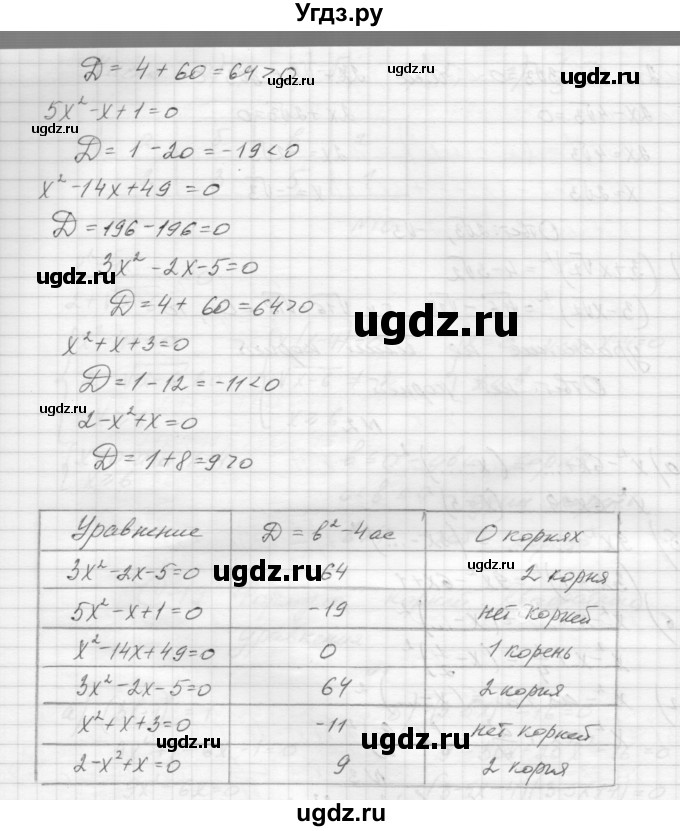 Угдз.ру
D = 4 + 60 = 64 > 0
5x² - x + 1 = 0
D = 1 - 20 = -19 < 0
x² - 14x + 49 = 0
D = 196 - 196 = 0
3x² - 2x - 5 = 0
D = 4 + 60 = 64 > 0
x² + x + 3 = 0
D = 1 - 12 = -11 < 0
2 - x² + x = 0
D = 1 + 8 = 9 > 0
Уравнение D = b² - 4ac О корнях
3x² - 2x - 5 = 0 64 2 корня
5x² - x + 1 = 0 -19 нет корней
x² - 14x + 49 = 0 0 1 корень
3x² - 2x - 5 = 0 64 2 корня
x² + x + 3 = 0 -11 нет корней
2 - x² + x = 0 9 2 корня
ugdz.ru
ugdz.ru
ugdz.ru
ugdz.ru
ugdz.ru
ugdz.ru
ugdz.ru
ugdz.ru
ugdz.ru
ugdz.ru
ugdz.ru
ugdz.ru
ugdz.ru
ugdz.ru